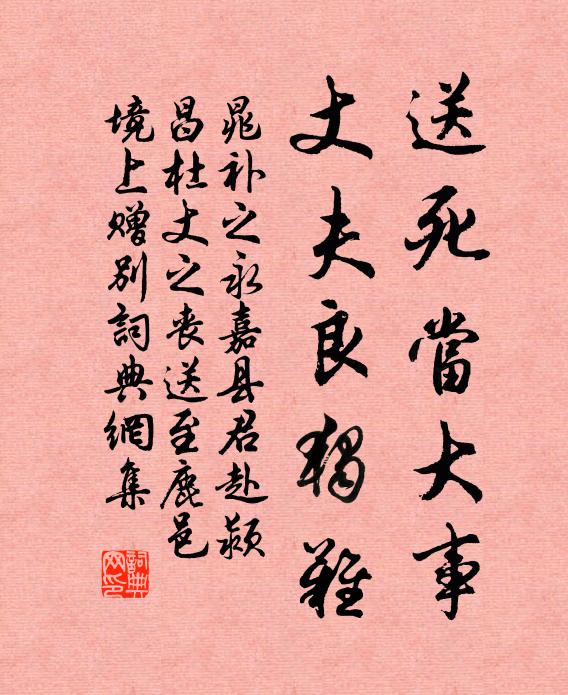 送死當大事
丈夫良獨難
晁补之永嘉县君赴颍
昌杜丈之丧送至鹿邑
境上赠別詞典網集
詞典網印